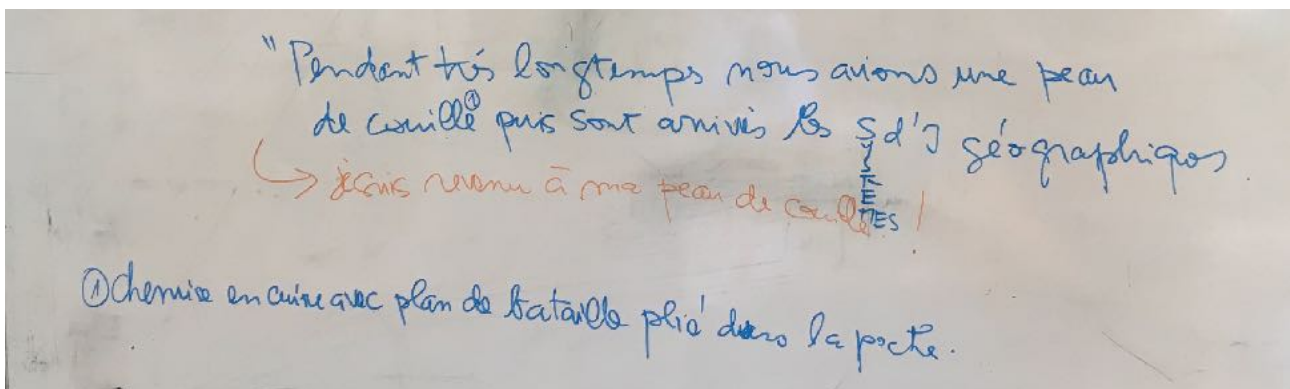 "Pendant très longtemps nous avions une peau
de couille① puis sont arrivés les S d'I géographiques.
SYSTEMES
↳ je suis revenu à ma peau de couille !
① Chemise en cuire avec plan de bataille plié dans la poche.